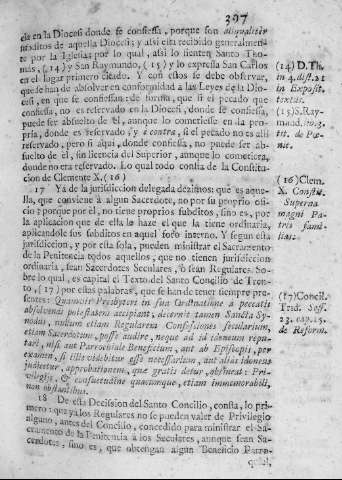 397
cia en la Diocesi donde se confiessa, porque son aliqualiter
subditos de aquella Diocesi; y assi está recibido generalmen-
te por la Iglesia: por lo qual, assi lo sienten Santo Tho-
màs, (14) y San Raymundo, (15) y lo expressa San Carlos
en el lugar primero citado. Y con estos se debe observar,
que se han de absolver en conformidad a las Leyes de la Dio-
cesi, en que se confiessan: de forma, que si el pecado que
confiessa, no es reservado en la Diocesi, donde se confiessa,
puede ser absuelto de él, aunque lo cometiesse en la pro-
pria, donde es reservado, y è contra, si el pecado no es assi
reservado, pero si aqui, donde se confiessa, no puede ser ab-
suelto de él, sin licencia del Superior, aunque lo cometiera,
donde no era reservado. Lo qual todo consta de la Constitu-
cion de Clemente X. (16)
17 Yá de la jurisdiccion delegada dezimos: que es aque-
lla, que conviene à algun Sacerdote, no por su proprio ofi-
cio; ò porque por el, no tiene proprios subditos, sino es, por
la aplicacion que de ella le haze el que la tiene ordinaria,
aplicandole sus subditos en aquel foro interno. Y segun esta
jurisdiccion, y por esta sola, pueden ministrar el Sacramento
de la Penitencia todos aquellos, que no tienen jurisdiccion
ordinaria, sean Sacerdotes Seculares, ò sean Regulares. So-
bre lo qual, es capital el Texto del Santo Concilio de Tren-
to, (17) por estas palabras, que se han de tener siempre pre-
sentes: Quamvis Presbyteri in sua Ordinatione à peccatis
absolvendi potestatem accipiant, decernit tamen Sancta Sy-
nodus, nullum etiam Regularem Confessiones sæcularium,
etiam Sacerdotum, posse audire, neque ad id idoneum repu-
tari, nisi aut Parrochiale Beneficium, aut ab Episcopis, per
examen, si illis videbitur esse necessarium, aut aliàs idoneus
judicetur, approbationem, quæ gratis detur, obtineat: Pri-
vilegijs, & consuetudine quacumque, etiam immemorabili,
non obstantibus.
18 De esta Decission del Santo Concilio, consta, lo pri-
mero: que ya los Regulares no se pueden valer de Privilegio
alguno, antes del Concilio, concedido para ministrar el Sa-
cramento de la Penitencia a los Seculares, aunque sean Sa-
cerdotes, sino es, que obtengan algun Beneficio Parro-
quial,
(14) D. Th.
in 4. dist. 21
in Exposit.
textus.
(15) S. Ray-
mund.
tit. de Pœ-
nit.
(16) Clem.
X. Constit.
Superna
magni Pa-
tris fami-
lias.
(17) Concil.
Trid. Sess.
23. cap. 15.
de Reform.